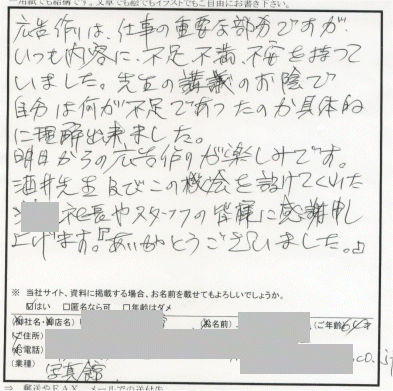 用紙でも結構です。文章でも絵でもイラストでもご自由にお書き下さい。
広告作りは、仕事の重要な部分ですが、
いつも内容に、不足、不満、不安を持って
いました。先生の講義のお陰で
自分は何が不足であったのか具体的
に理解出来ました。
明日からの広告作りが楽しみです。
酒井先生及びこの機会を設けてくれた
社長やスタッフの皆様に感謝申し
上げます。『ありがとうございました。』
※ 当社サイト、資料に掲載する場合、お名前を載せてもよろしいでしょうか。
☑はい □匿名なら可 □年齢はダメ
(御社名・御店名) (お名前) (ご年齢)64才
(ご住所)
(お電話) co.jp
(業種) 写真館
⇒ 郵送やFAX、メールでの送付先